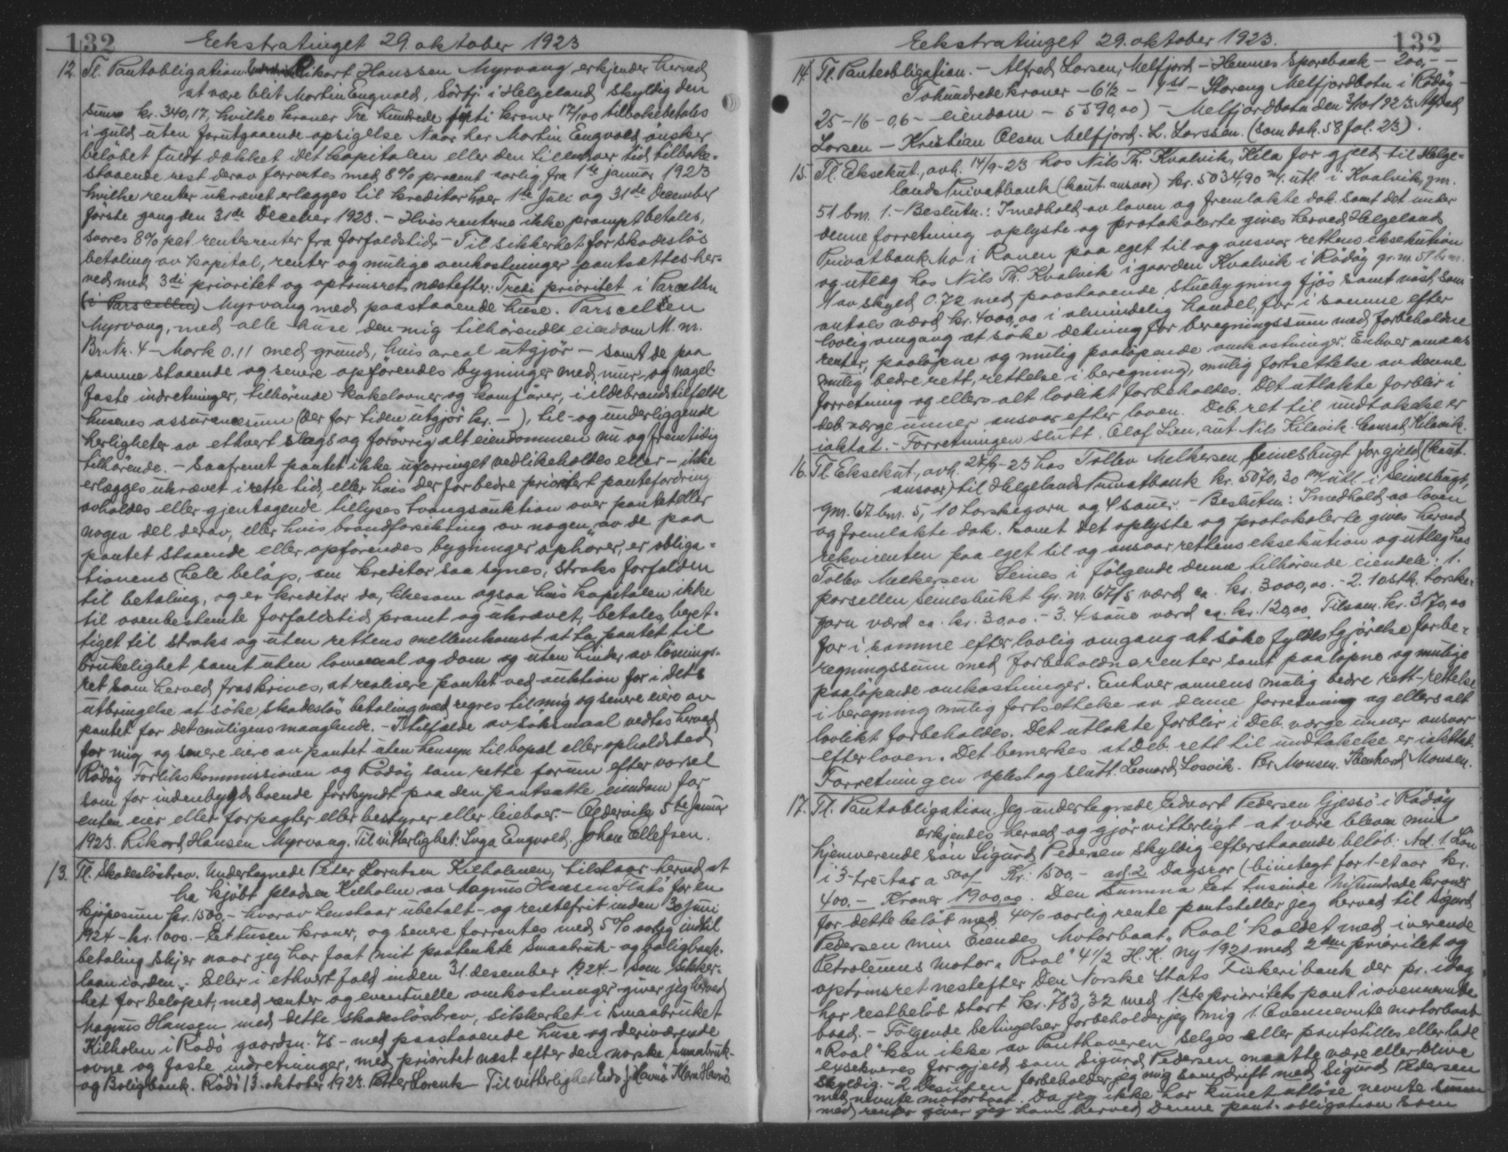 132 Eekstratinget 29. oktober 1923
12. Tl. Pantobligation Rikort Hanssen Myrvang erkjender herved
at være blit Martin Engvold, Sörfj. i Helgeland skyldig den
sum kr. 340,17, hvilke kroner Tre hundrede førti kroner 17/100 tilbakebetales
i guld uten forutgaaende opsigelse Naar her Martin Engvold önsker
belöbet fuldt dækket Det kapitalen eller den til enhver tid tilbake-
staaende rest derav forrentes med 8% procent aarlig fra 1ste januar 1923
hvilke renter ukrævet erlægges til kreditor hver 1ste Juli og 31de December
förste gang den 31de December 1923. - Hvis renterne ikke prompt betales,
svares 8% pct rentesrenter fra forfaldstid - Til sikkerhet for skadeslös
betaling av kapital, renter og mulige omkostninger pantsættes her-
ved med 3die prioritet og optrinsret næstefter: Tredi prioritet i Parcellen
(i Parscellen) Myrvang med paastaaende huse. Parscellen
Myrvang, med alle huse den mig tilhörende eiendom M. nr.
Br. Nr. 4 - Mark 0.11 med grund, hvis areal utgjör - samt de paa
samme staaende og senere opförendes bygninger med mur og nagel-
faste indretninger, tilhörende kakelovner og komfürer, i ildebrandstilfælde
husenes assurancesum (der for tiden utgjör kr. - ), til- og underliggende
herligheter av ethvert slags og förövrig alt eiendommen nu og fremtidig
tilhörende. - Saafremt pantet ikke uforringet vedlikeholdes eller - ikke
erlægges ukrævet i rette tid, eller hvis der for bedre prioritert pantefordring
avholdes eller gjentagende tillyses tvangsauktion over pantet eller
nogen del derav, eller hvis brandforsikring av nogen av de paa
pantet staaende eller opförendes bygninger ophörer, er obliga-
tionens hele belöp, om kreditor saa synes, straks forfalden
til betaling, og er kreditor da, likesom ogsaa hvis kapitalen ikke
til ovenbestemte forfaldstid promt og ukrævet, betales, beret-
tiget til straks og uten rettens mellemkomst at ta pantet til
brukelighet samt uten lovmaal og dom og uten hinder av lösnings-
ret som herved fraskrives, at realisere pantet ved auktion for i dets
utbringelse at söke skadeslös betaling med regres til mig og senere eiere av
pantet for det muligens manglende. - I tilfælde av söksmaal vedtas herved
for mig og senere eiere av pantet uten hensyn til bopæl eller opholdssted
Rödöy Forlikskommissionen og Rödöy som rette forum efter varsel
som for indenbygds boende forkyndt paa den pantsatte eiendom for
enten eier eller forpagter eller bestyrer eller leieboer. - Aldervik 5te Januar
1923. Rikard Hansen Myrvang. Til vitterlighet: Inga Engvold, Johan Ellefsen.
13. Tl. Skadeslösbrev. Undertegnede Peter Lorentsen Kilholmen, tilstaar herved at
ha kjöbt pladsen Kilholm av Magnus Hansen for en
kjöpesum kr. 1500,- hvorav henstaar ubetalt - og rentefrit inden 30 juni
1924 - kr. 1000.- Et tusen kroner, og senere forrentes med 5% aarlig indtil
betaling skjer naar jeg har faat mit paatænkte smaabruk- og boligbank-
laan iorden. Eller i ethvert fald inden 31. desember 1924 - som sikker-
het for belöpet, med renter og eventuelle omkostninger giver jeg herved
Magnus Hansen med dette skadeslösbrev, sikkerhet i smaabruket
Kilholm i Rödö gaardsn. 75 - med paastaaende huse og derværende
ovne og faste indretninger, med prioritet næst efter den norske smaabruk-
og Boligbank. Rödö 13. oktober 1923. Petter Lorents - Til vitterlighet

Eekstratinget 29. oktober 1923. 132
14. Tl. Panteobligation. - Alfred Larsen, Melfjord - Hemnes Sparebank - 200,- -
Tohundrede kroner - 6½ - Storeng Melfjordbotn i Rödöy -
25-16-0,6 - eiendom - 5590,00) - Melfjordbotn den 1923 Alfred
Larsen - Kristian Olsen Melfjord. L. Larssen. (som dok. 58 fol. 23).
15. Tl. Eksekut. avh. 14/9-23 hos Nils Th. Kvalvik, Kila for gjeld til Helge-
lands Privatbank (kaut. ansvar) kr. 5034,90 m/. utl. i Kvalvik, gm.
51 bm. 1. - Beslutn.: I medhold av loven og fremlakte dok. samt det under
denne forretning oplyste og protokolerte gives herved Helgelands
Privatbank Mo i Ranen paa eget til og ansvar rettens eksekution
og utlæg hos Nils Th. Kvalvik i gaarden Kvalvik i Rödöy gr. nr. 51 br. nr.
1 av skyld 0.72 med paastaaende stuebygning fjös samt nöst, som
antales værd kr. 4000,00 i almindelig handel, for i samme efter
lovlig omgang at söke dekning for beregningssum med forbeholdne
renter, paalöpne og mulig paalöpende omkostninger. Enhver annens
mulig bedre rett, rettelse i beregning, mulig fortsettelse av denne
forretning og ellers alt lovlikt forbeholdes. Det utlakte forblir i
deb. værge under ansvar efter loven. Deb. ret til undtakelse er
iaktat. - Forretningen slutt. Olaf Lien, aut. Nils Kilavik. Conrad Kilavik.
16. Tl. Eksekut, avh. 24/9-23 hos Tollev Melkersen Seinesbugt for gjeld (kaut.
ansvar) til Helgelands Privatbank kr. 5070,30 m/ utl. i Seinesbugt,
gm. 67. bm. 5, 10 torskegarn og 4 sauer. - Beslutn.: I medhold av loven
og fremlakte dok. samt det oplyste og protokolerte gives herved
rekvirenten paa eget til og ansvar rettens eksekution og utlæg hos
Tollev Melkersen Seines i fölgende denne tilhörende eiendele: 1.
parsellen Seinesbukt Gr. nr. 67/5 værd ca. kr. 3000,00. - 2. 10 stk. torske-
garn værd ca. kr. 50,00 - 3. 4 saue værd ca. kr. 120,00. Tilsam. kr. 3170,00
for i samme efter lovlig omgang at söke fyldestgjörelse for be-
regningssum med forbeholdne renter samt paalöpne og mulige
paalöpende omkostninger. Enhver annens mulig bedre rett - rettelse
i beregning mulig fortsettelse av denne forretning og ellers alt
lovlikt forbeholdes. Det utlakte forblir i deb. værge under ansvar
efter loven. Det bemerkes at deb. rett til undtakelse er iakttat.
Forretningen oplest og slutt. Leonard Losvik. Per Monsen. Bernhard Monsen.
17. Tl. Pantobligation, Jeg undertegnede Edvart Pedersen Gjessö i Rödöy
erkjendes herved og gjör vitterligt at være bleven min
hjemverende sön Sigurd Pedersen skyldig efterstaaende belöb: Ad. 1 Lön
i 3-tre-aar a 500/ Kr. 1500,- ad. 2 Dagspor (biintegt for 1-et aar kr.
400.- Kroner 1900,00. Den summa Et tusende Nihundrede kroner
for dette belöb med 4% aarlig rente pantsteller jeg herved til Sigurd
Pedersen min Eiendes Motorbaat „Roal" kaldet med iverende
Petroleums motor „Roal" 4½ H.K. ny 1921 med 2den prioritet og
optrinsret nestefter Den Norske Stats Fiskeribank der pr. idag
har restbelöb stort kr. 783,32 med 1ste prioritets pant i ovennevnte
baad. - Fölgende betingelser forbeholder jeg mig 1. Ovennevnte motorbaat
„Roal" kan ikke av Panthaveren selges eller pantstilles eller lade
exsekveres for gjeld som Sigurd Pedersen maatte være eller blive
skyldig. - 2 Desuten forbeholder jeg mig samdrift med Sigurd Pedersen
med nevnte motorbaat. Da jeg ikke har kunet utlöse nevnte sum
med renter giver jeg ham herved denne pant-obligation som